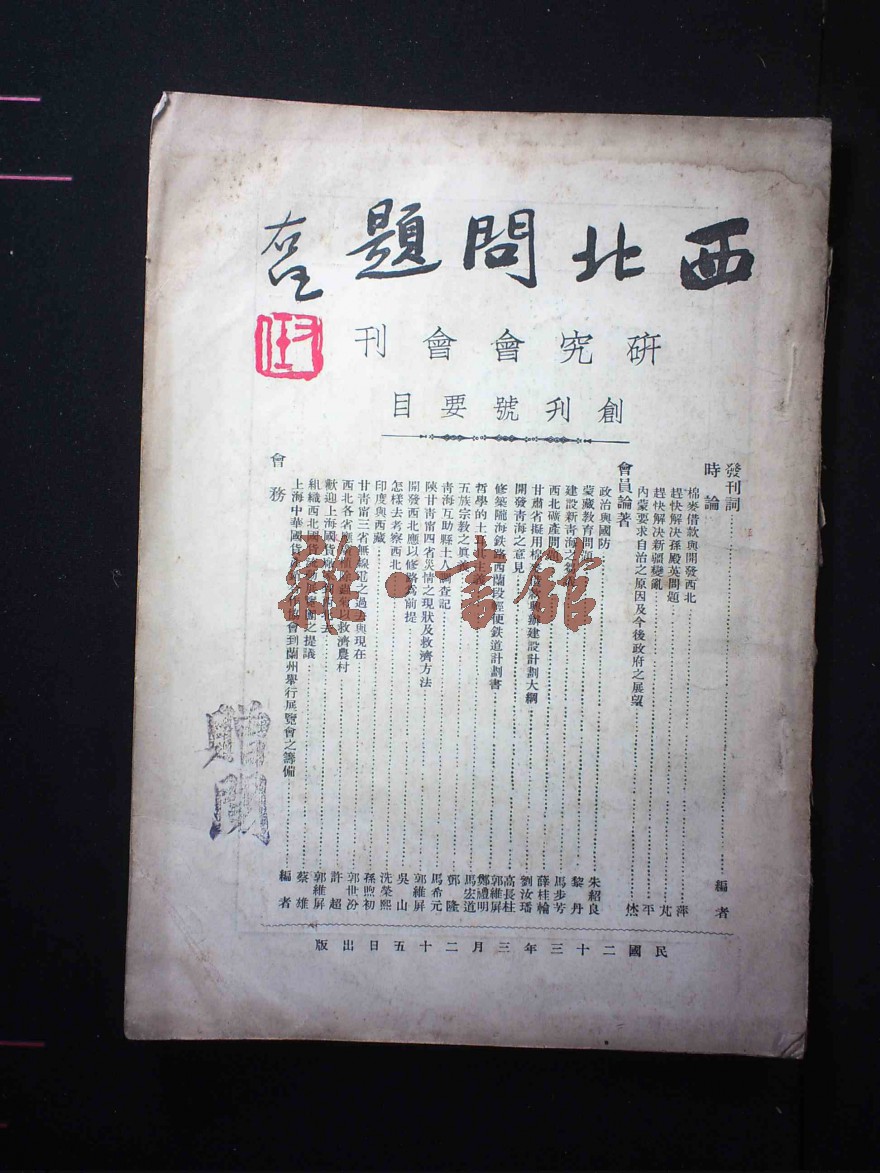 西北問題
右任
研究會會刊
創刊號要目
發刊詞 編者
時論
棉麥借款與開發西北 萍
趕快解決孫殿英問題 芃
趕快解決新疆變亂 平
內蒙要求自治之原因及今後政府之展望 然
會員論著
政治與國防 朱紹良
蒙藏教育問題 黎丹
建設新青海之 馬步芳
西北礦產問題 薛桂輪
甘肅省擬用棉麥 辦建設計劃大綱 劉汝璠
開發青海之意見 高長柱
修築隴海鉄路西蘭段輕便鉄道計劃書 郭維屏
哲學的土 鄭禮明
五族宗教之眞 馬宏道
青海互助縣土人調查記 鄧隆
陝甘青甯四省災情之現狀及救濟方法 馬希元
開發西北應以修路爲前提 郭維屏
怎樣去考察西北 吳山
印度與西藏 沈榮熙
甘青甯三省無線電之過去與現在 孫煦初
西北各省應 以救濟農村 郭世汾
歡迎上海國貨 去 許超
組織西北國貨 之提議 郭維屏
會務
上海中華國貨 協會到蘭州舉行展覽會之籌備 蔡雄
編者
民國二十三年三月二十五日出版
雜·書館